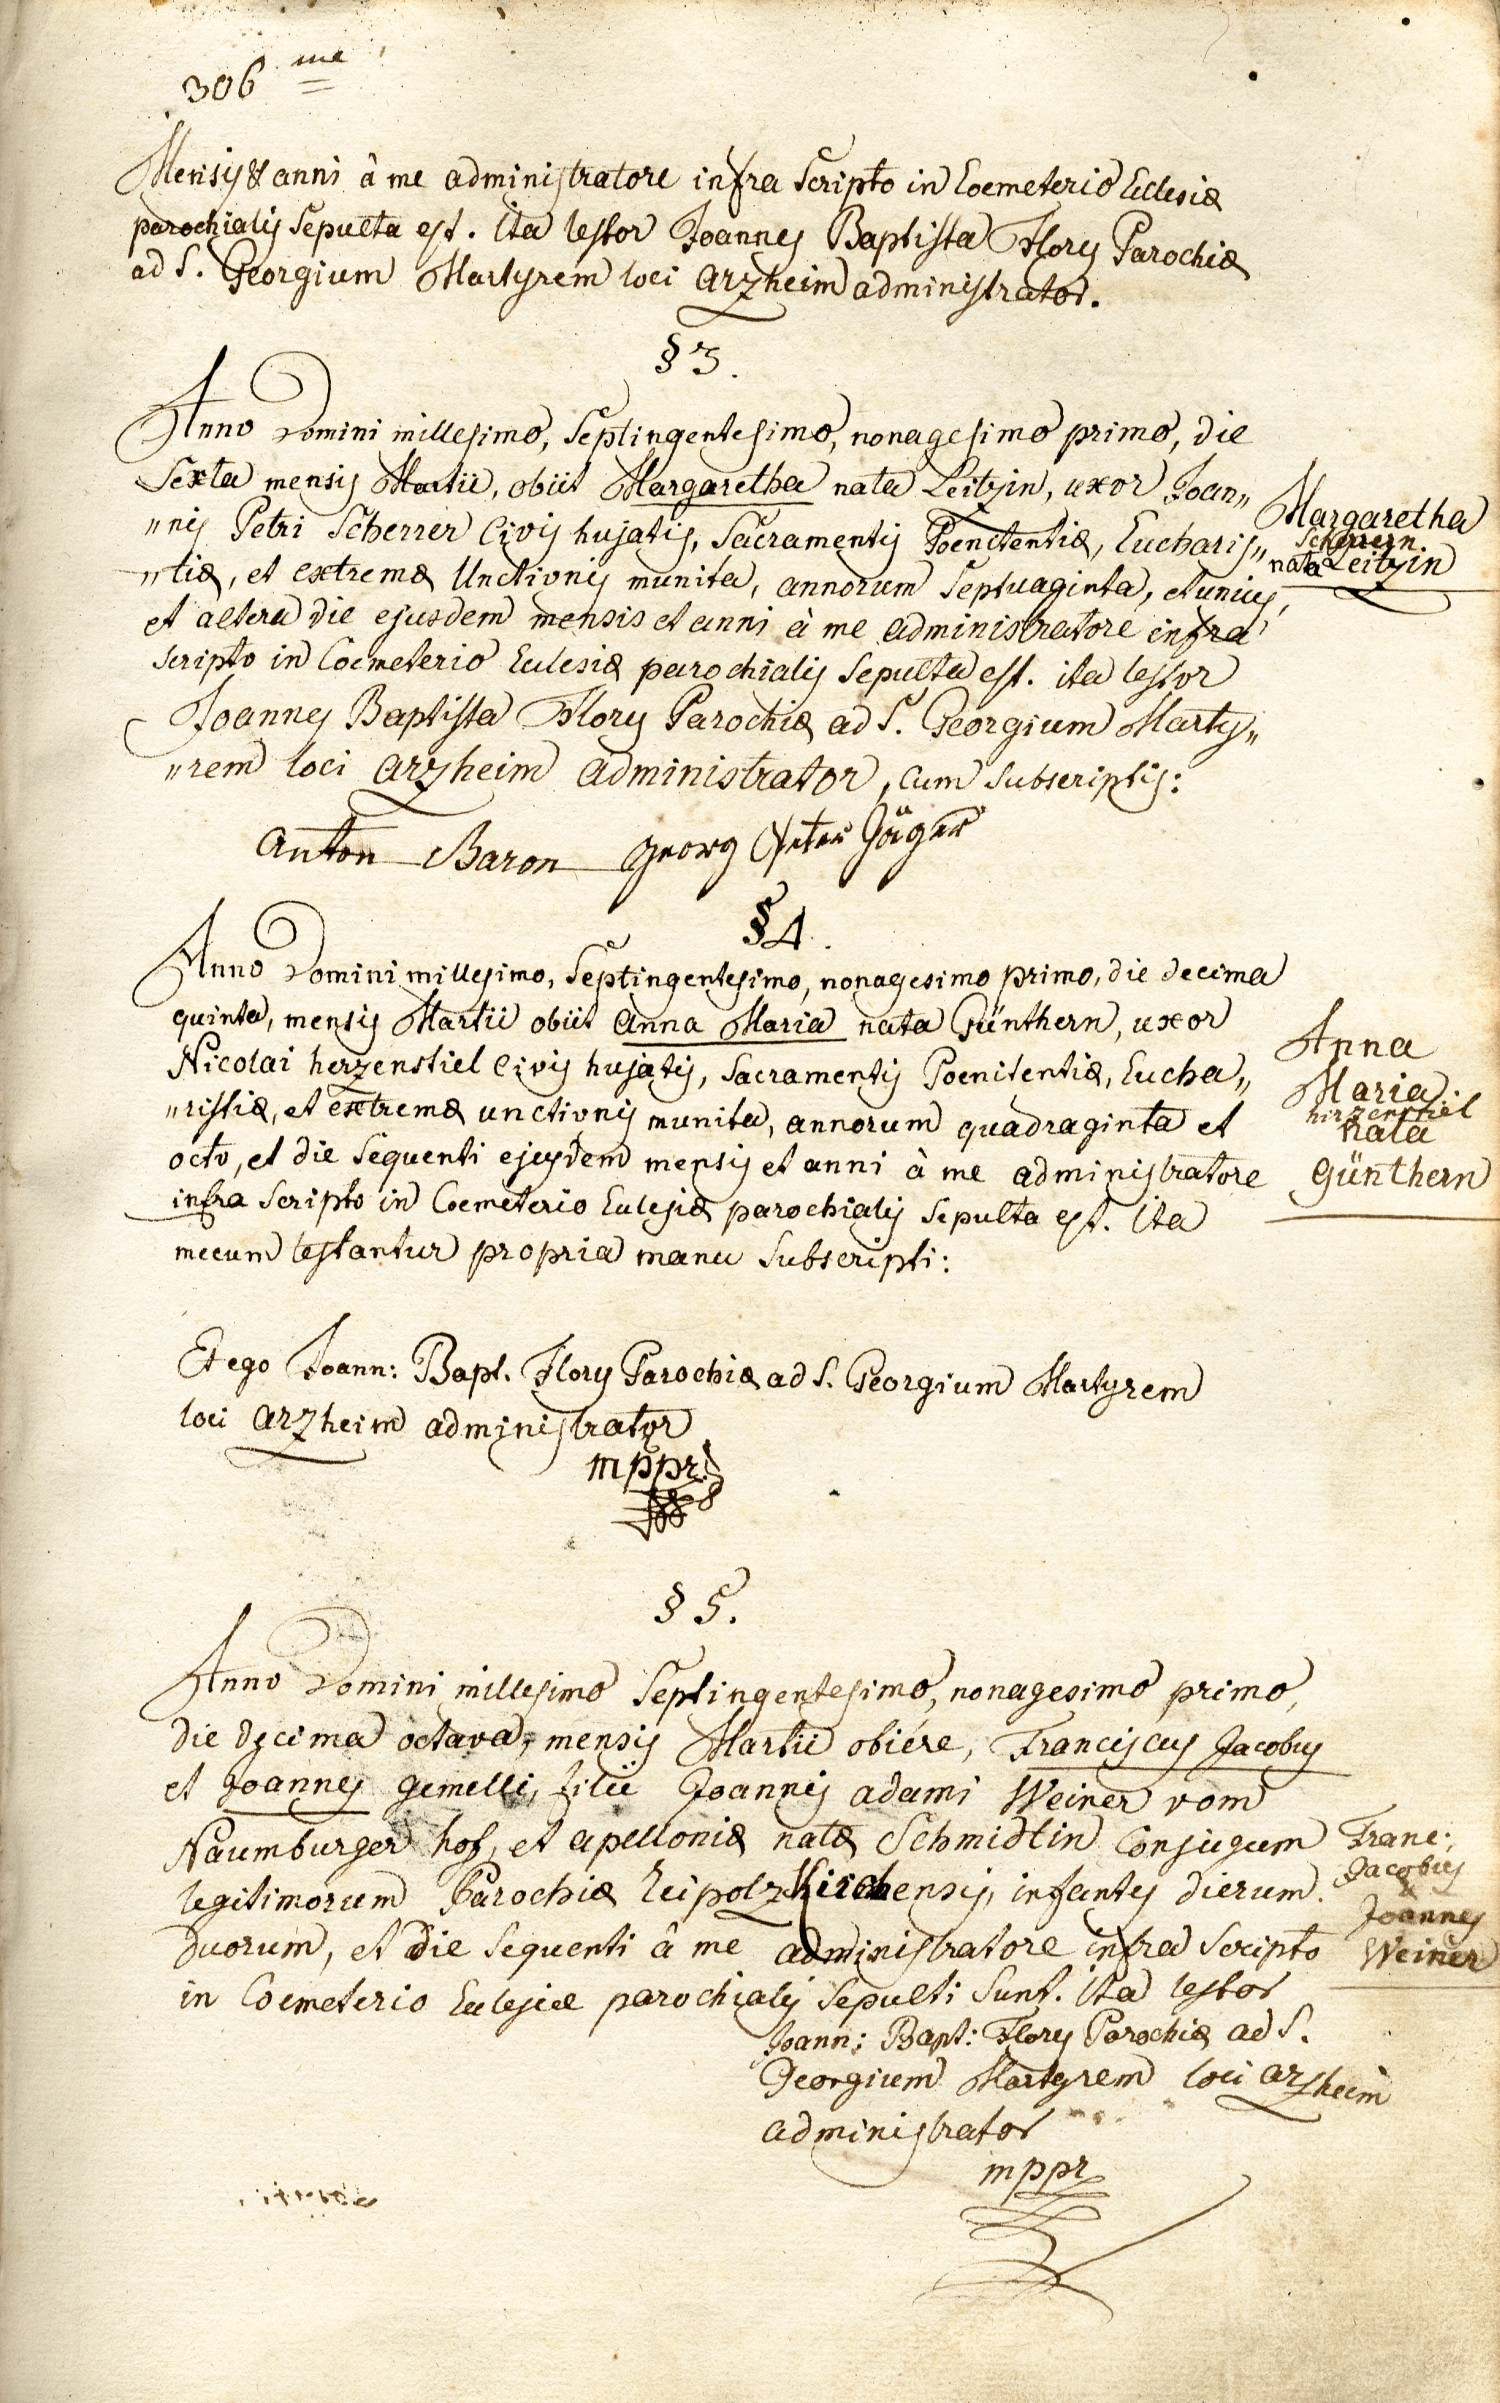 306 me
Mensis & anni à me administratore infra Scripto in Coemeterio Ecclesiæ
parochialis Sepulta est. Ita testor Joannes Baptista Flory Parochiæ
ad S. Georgium Martyrem loci Arzheim administrator.
§ 3.
Anno Domini millesimo, Septingentesimo, nonagesimo primo, die
Sexta mensis Martii, obiit Margaretha nata Leitzin, uxor Joan„
„nis Petri Scherrer Civis hujatis, Sacramentis Poenitentiæ, Eucharis„
„tiæ, et extremæ Unctionis munita, annorum Septuaginta, et unius,
et altera die ejusdem mensis et anni à me administratore infra
scripto in Coemeterio Eclesiæ parochialis Sepulta est. ita testor
Joannes Baptista Flory Parochiæ ad S. Georgium Marty„
„rem loci Arzheim administrator, cum subscriptis:
Margaretha
Scherrern
nata Leitzin
Anton Baron Georg Peter Jäger
§ 4.
Anno Domini millesimo, Septingentesimo, nonagesimo primo, die decima
quinta, mensis Martii obiit Anna Maria nata Günthern, uxor
Nicolai herzenstiel Civis hujatis, Sacramentis Poenitentiæ, Eucha„
„ristiæ, et extremæ unctionis munita, annorum quadraginta et
octo, et die Sequenti ejusdem mensis et anni à me administratore
infra Scripto in Coemeterio Eclesiæ parochialis Sepulta est. Ita
mecum testantur propria manu Subscripti:
Anna
Maria
hirzenstiel
nata
Günthern
Et ego Joann: Bapt. Flory Parochiæ ad S. Georgium Martyrem
loci Arzheim administrator
mppr
§ 5.
Anno Domini millesimo Septingentesimo, nonagesimo primo,
die decima octava, mensis Martii obiére, Franciscus Jacobus
et Joannes gemelli, filii Joannis adami Weiner vom
Naumburger hof, et apelloniæ natæ Schmidtin Conjugum
legitimorum Parochiæ Leipolzkirchensis, infantes dierum
duorum, et die Sequenti à me administratore infra Scripto
in Coemeterio Eclesiæ parochialis Sepulti Sunt. Ita testor
Joann: Bapt: Flory Parochiæ ad S.
Georgium Martyrem loci Arzheim
administrator
mppr
Franc:
Jacobus
&
Joannes
Weiner